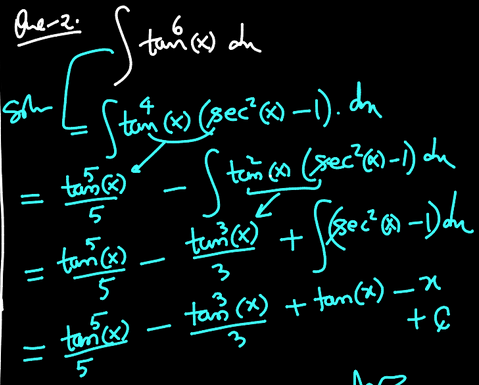 Que-2. ∫ tan⁶(x) dx
Soln
= ∫ tan⁴(x) (sec²(x) − 1). dx
= tan⁵(x)/5 − ∫ tan²(x) (sec²(x) − 1) dx
= tan⁵(x)/5 − tan³(x)/3 + ∫ (sec²(x) − 1) dx
= tan⁵(x)/5 − tan³(x)/3 + tan(x) − x
+ C